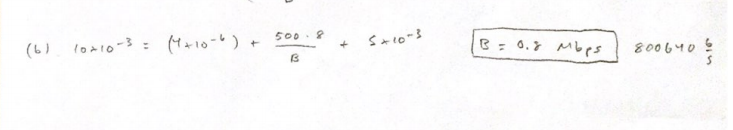 (b) 10×10⁻³ = (4×10⁻⁶) + 500·8/B + 5×10⁻³ B = 0.8 Mbps 800640 b/s